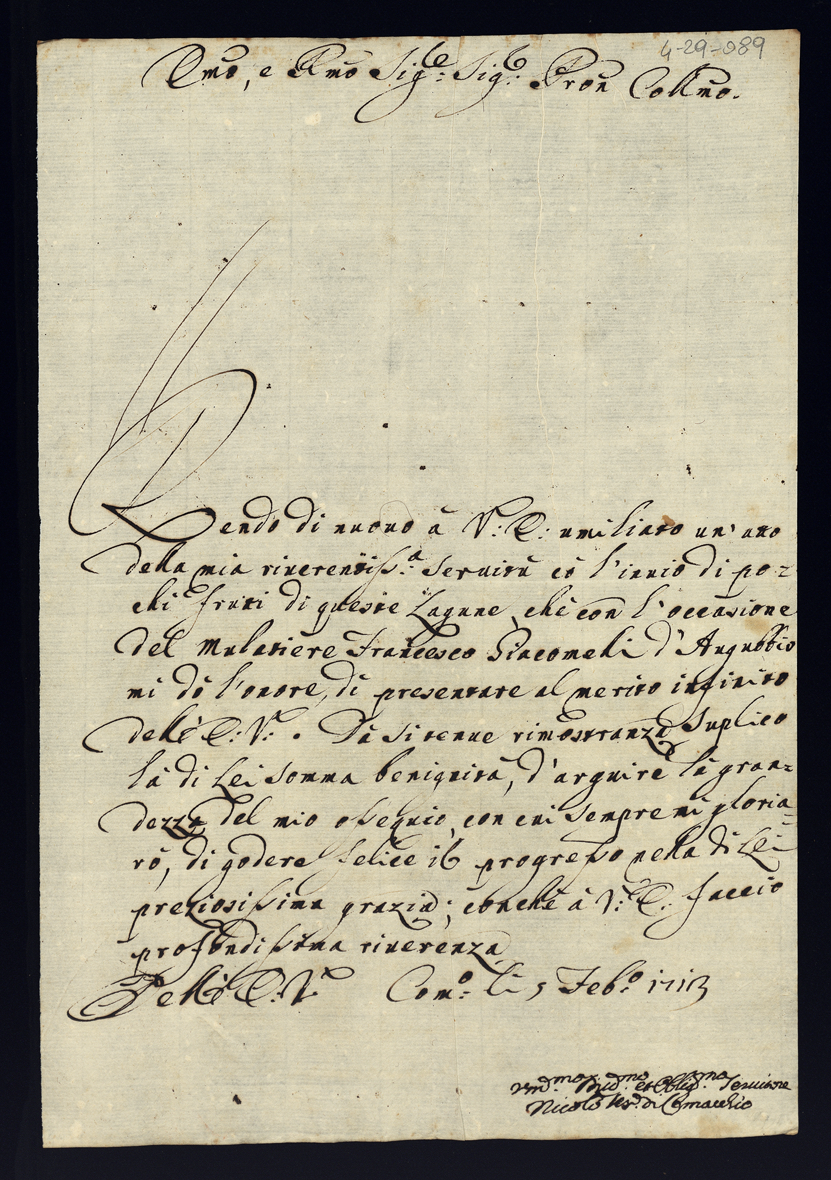 4-29-089
Emo, e Rmo Sig:re Sig:r Pron Collmo.
Rendo di nuovo à V:E: umiliato un' atto
della mia riuerentiss:a Seruitù cò l'inuio di po=
chi frutti di queste Lagune, che con l'occasione
del Mulatiere Francesco Giacomelli d'Augubbio
mi dò l'onore, di presentare al merito infinito
dell' E:V: . Dà si tenue rimostranza suplico
là di Lei somma benignità, d'arguire là gran=
dezza del mio ossequio, con cui sempre mi gloria=
rò, di godere felice il progresso nella di Lei
preziosissima grazia; conchè à V:E: faccio
profondissima riuerenza
Dell' E:V: Com:o li 5 Feb:o 1713
Vm:mo Diu:mo et Oblig:mo Seruitore
Nicolò Ves:o di Comacchio